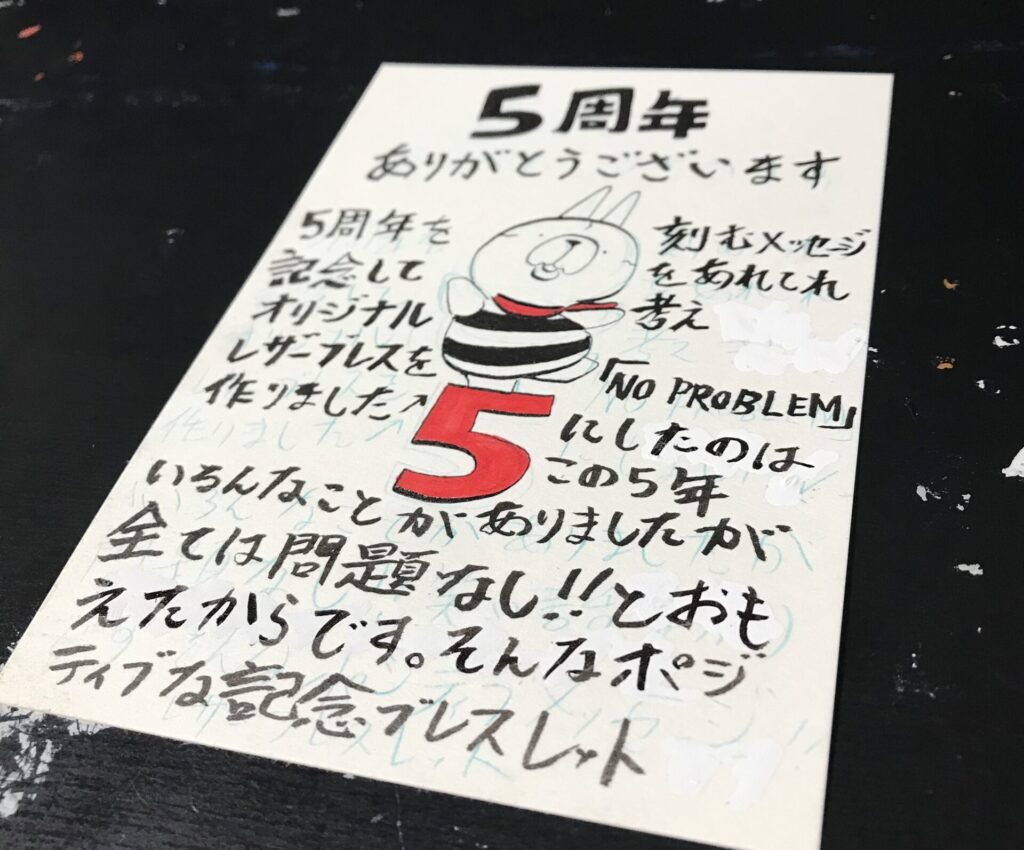 5周年
ありがとうございます
5周年を
記念して
オリジナル
レザーブレスを
作りました↗
刻むメッセージ
をあれてれ
考え
「NO PROBLEM」
5
にしたのは
この5年
いろんなことがありましたが
全ては問題なし!!とおも
えたからです。そんなポジ
ティブな記念ブレスレット